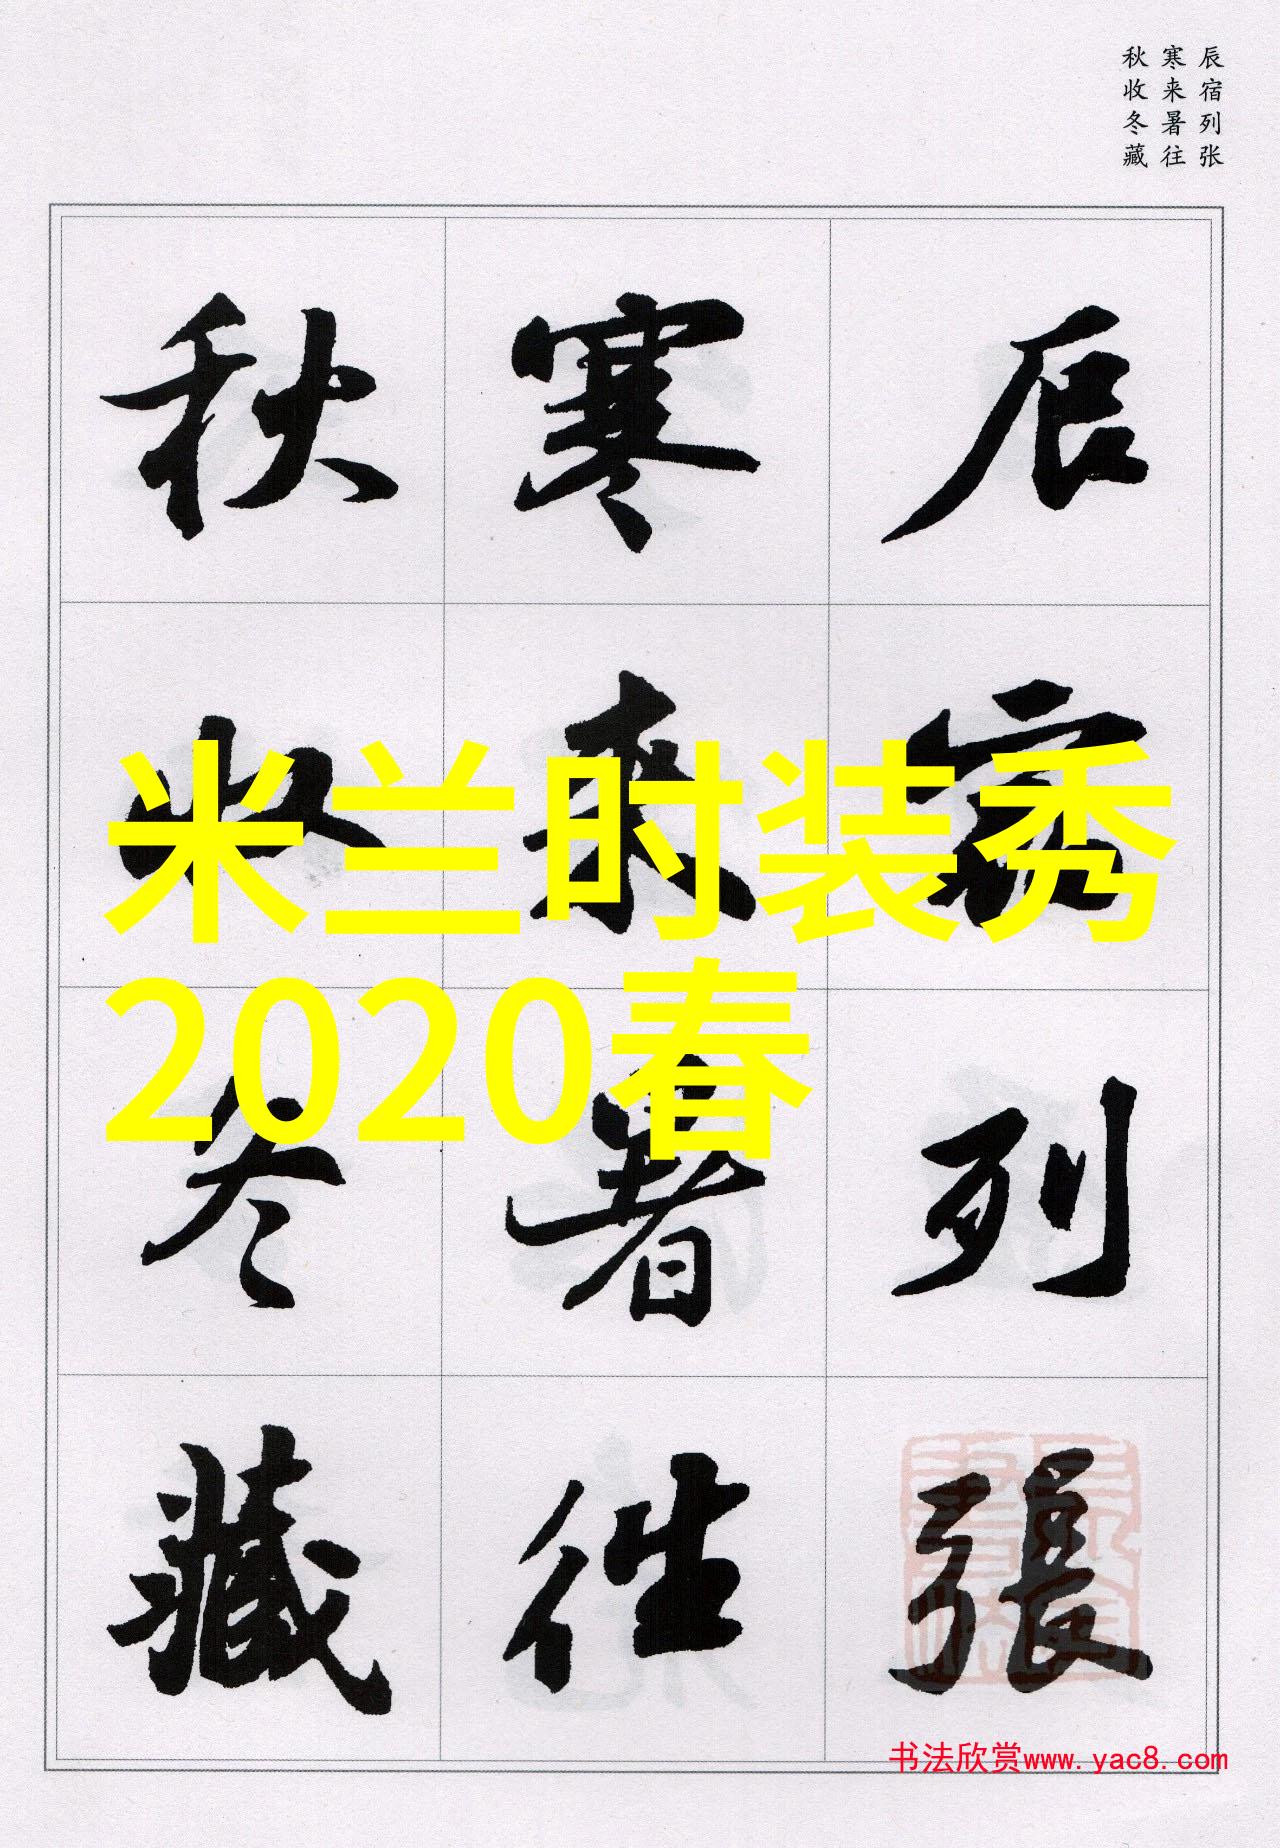 辰宿列张
寒来暑往
秋收冬藏
辰宿列張
寒来暑往
秋收冬藏
米兰时装秀
2020春
书法欣赏www.yac8.com